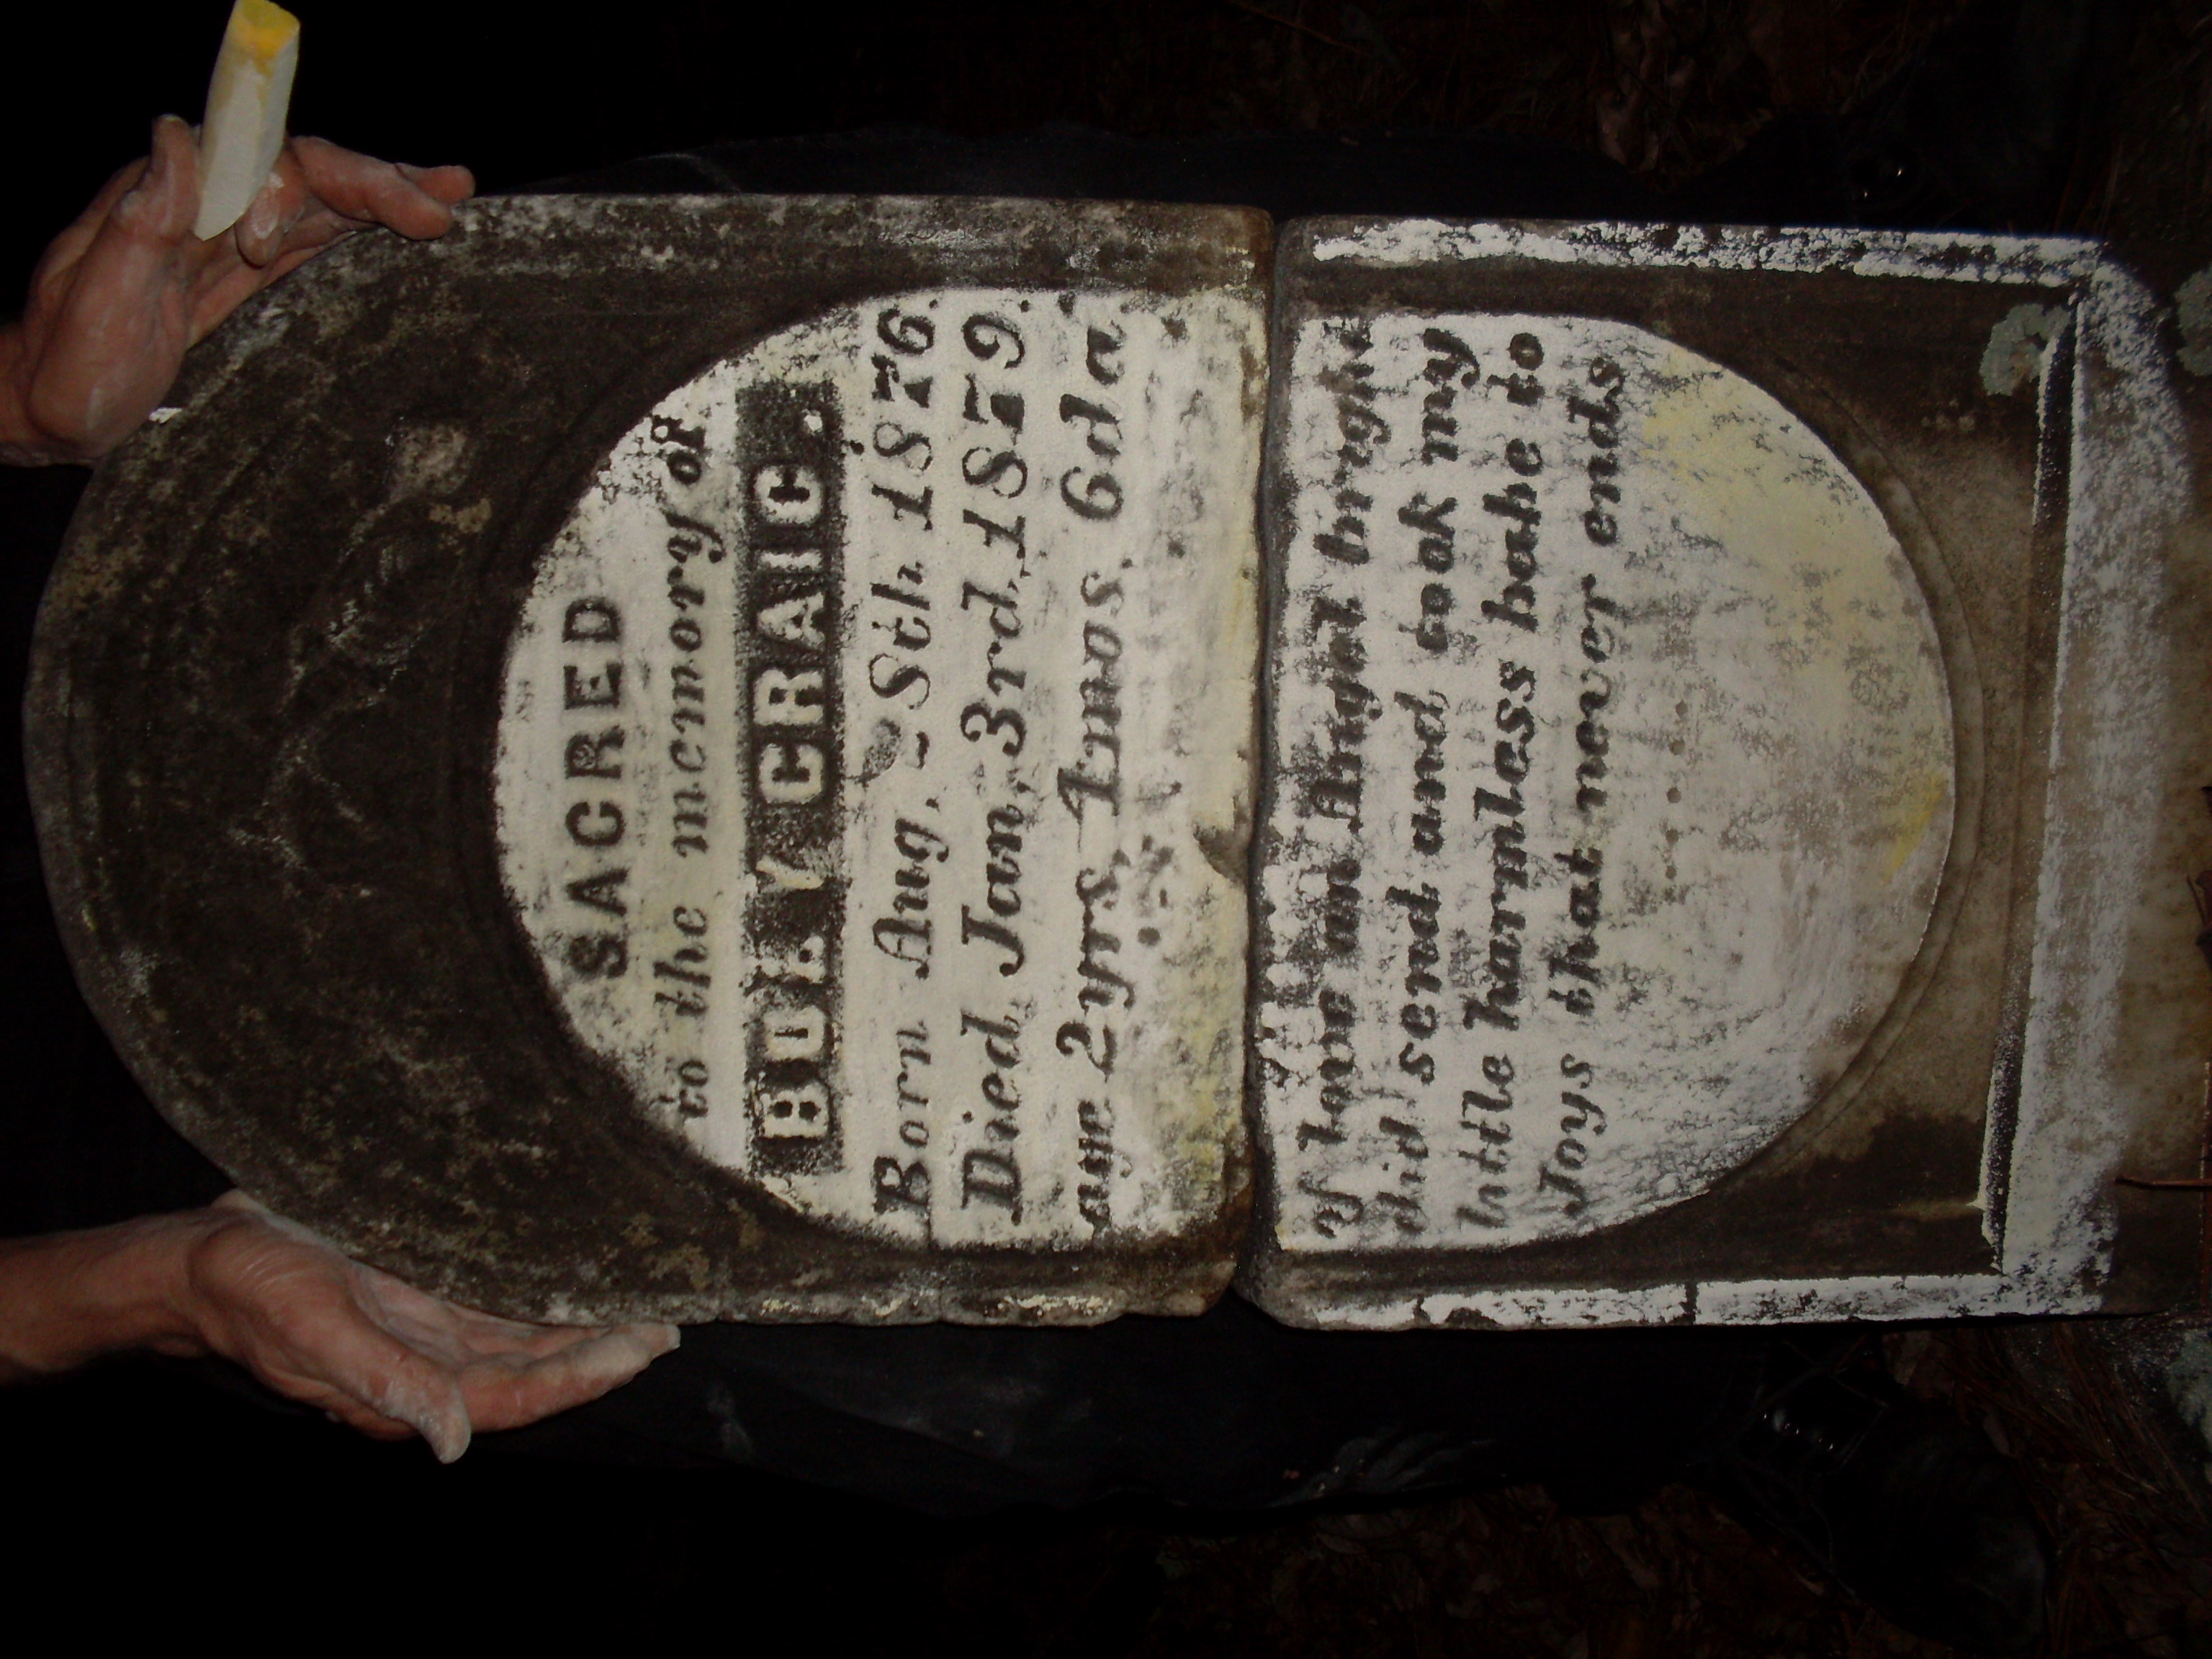 SACRED
to the memory of
CRAIG.
Born Aug, 28th 1876.
Died Jan, 3rd, 1879.
age 2yrs, 4mos, 6da
of love an Angel bright
did send and took my
little harmless babe to
Joys that never ends